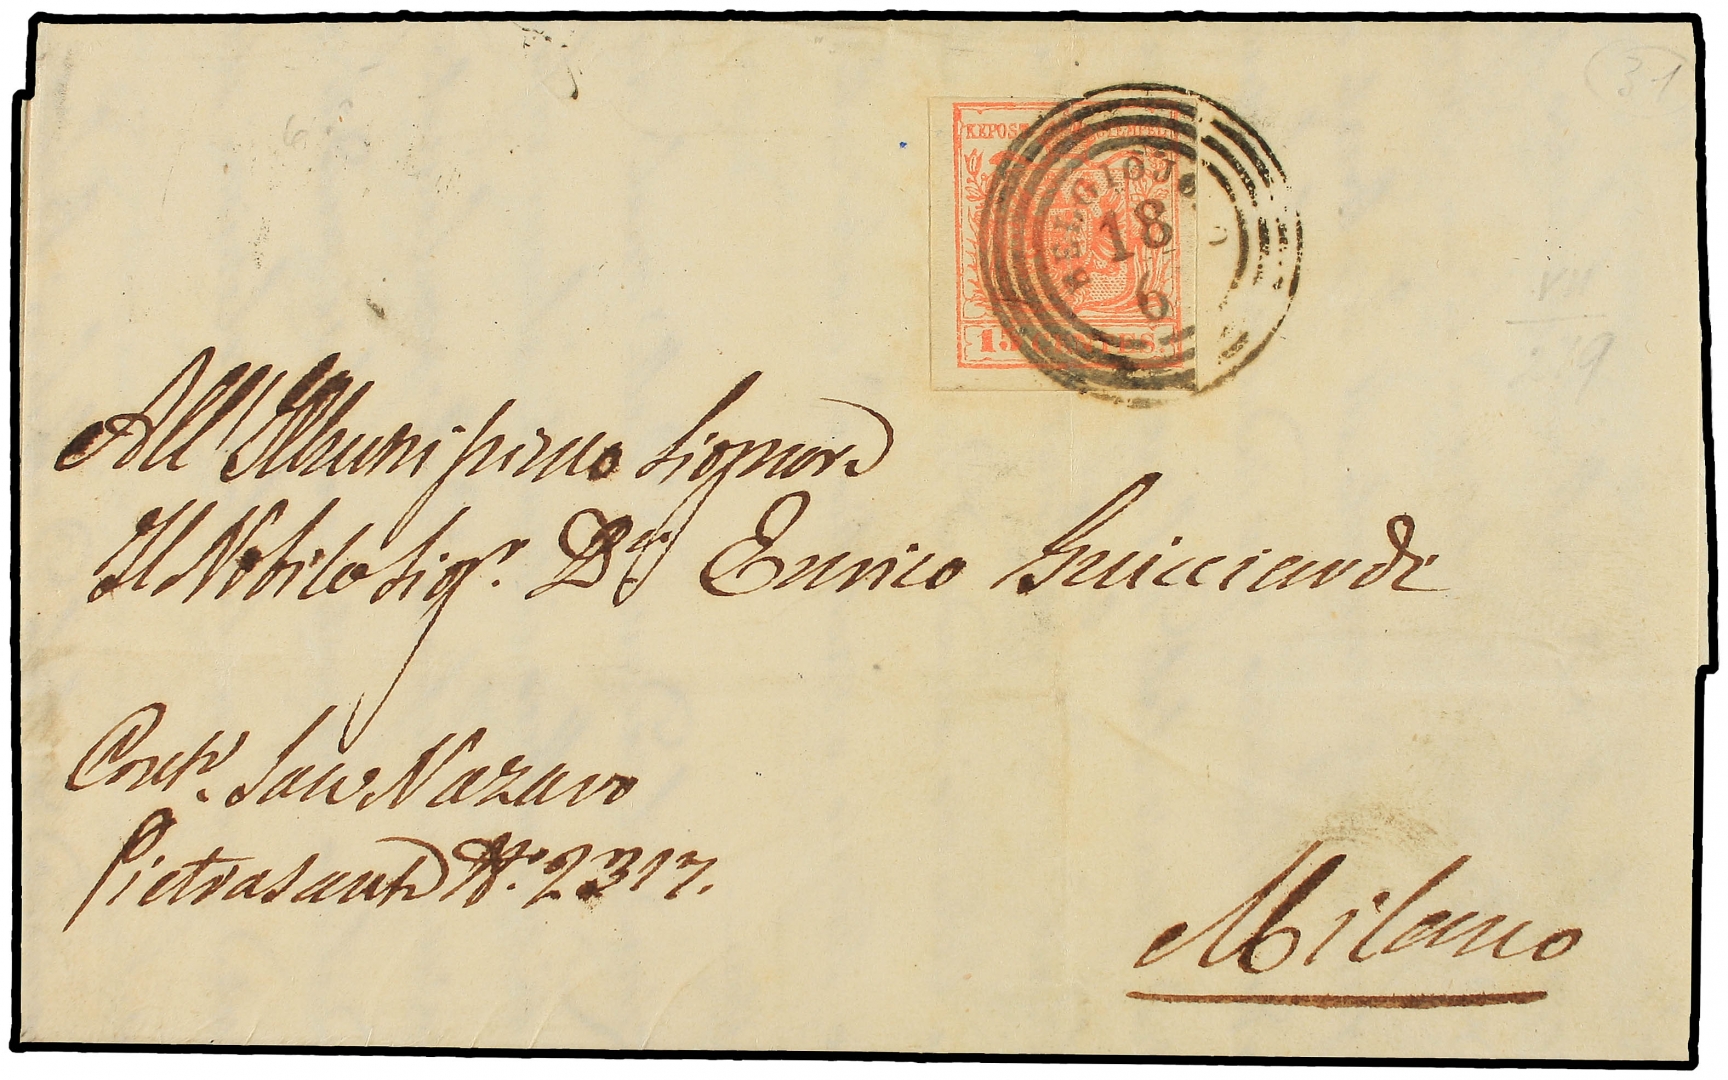 31
KEPOST STEMPEL
BELGIOJO
18
6
15 CENTES.
VII
219
All' Illustrissimo Signore
Il Nobile Sigr. Dr. Enrico Guicciardi
Contr. San Nazaro
Pietrasanta No. 2317.
Milano